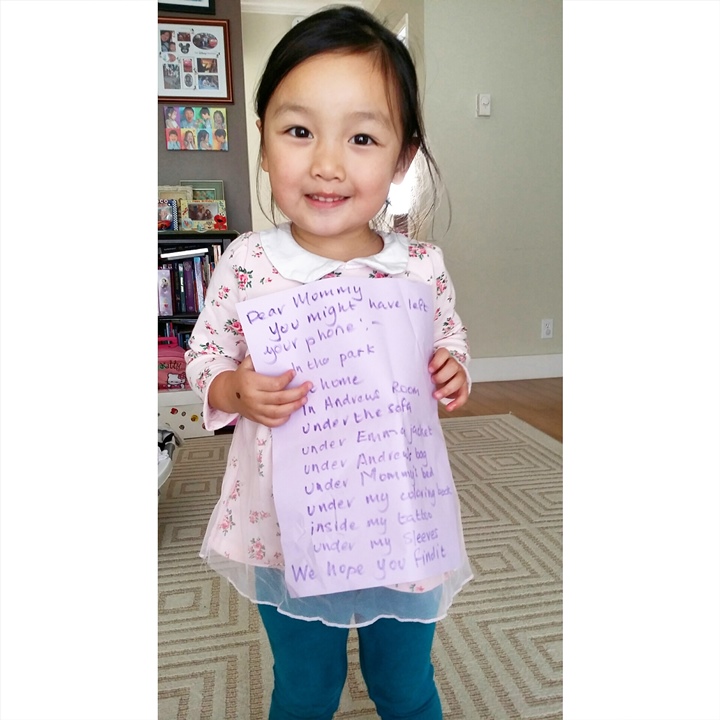 Dear Mommy
You might have left
your phone:-
In the park
home
In Andrews Room
under the sofa
under Emma jacket
under Andrew's bag
under Mommy's bed
under my coloring book
inside my
under my sleeves
We hope you find it
Kitty